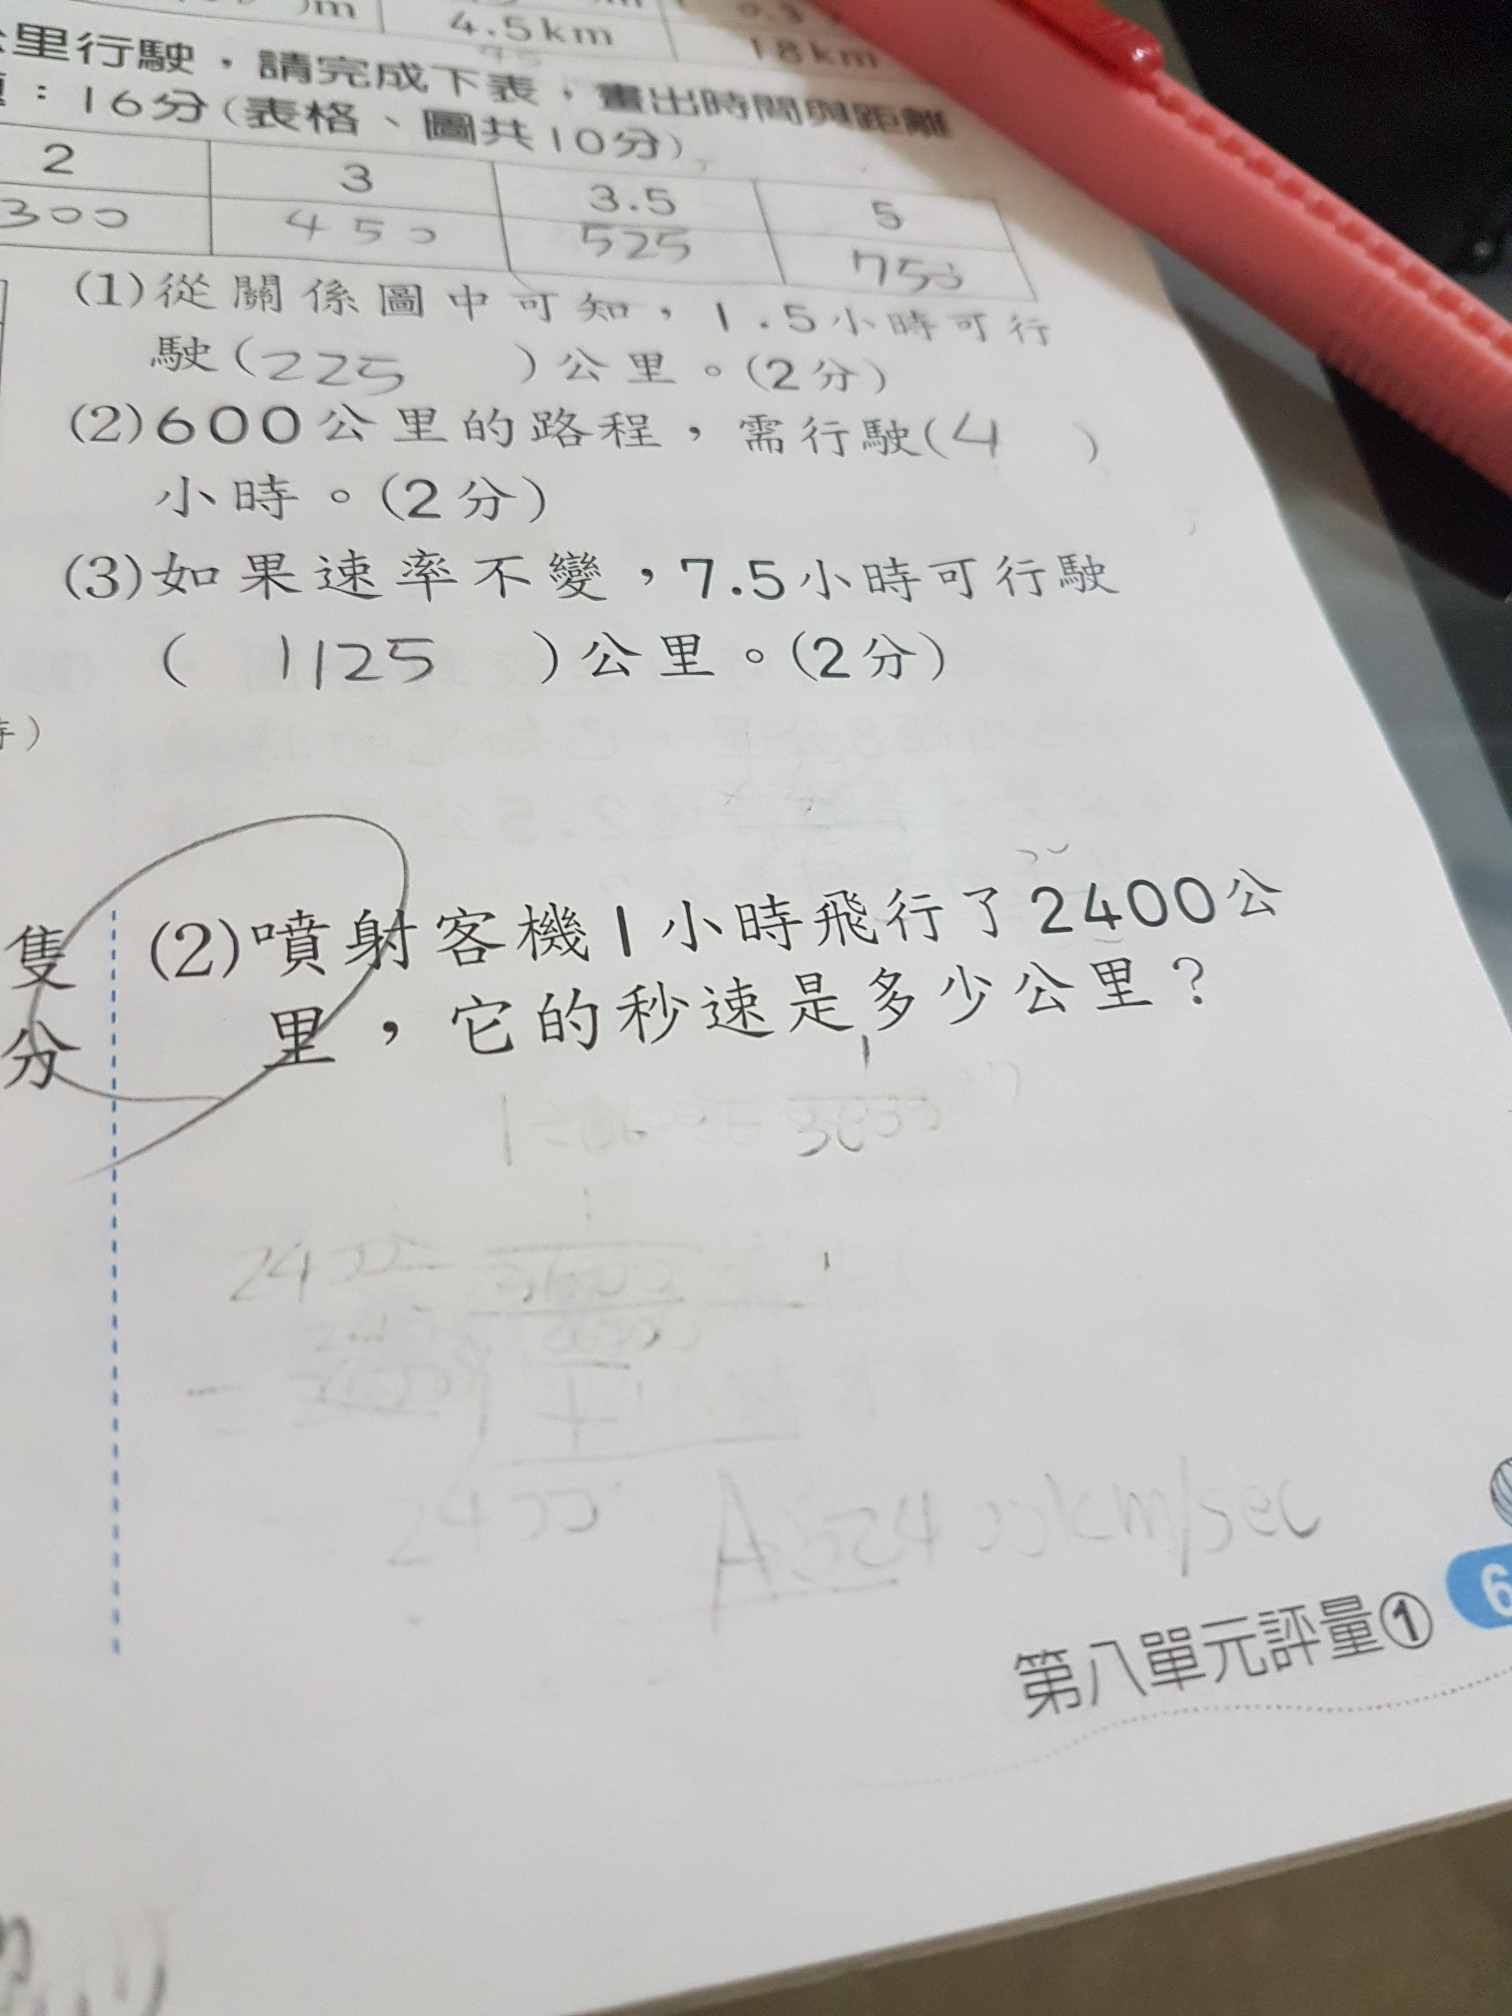 4.5km
18km
里行駛，請完成下表，畫出時間與距離
：16分(表格、圖共10分)
2 3 3.5 5
300 450 525 750
(1)從關係圖中可知，1.5小時可行
駛(225)公里。(2分)
(2)600公里的路程，需行駛(4)
小時。(2分)
(3)如果速率不變，7.5小時可行駛
(1125)公里。(2分)
隻
分
(2)噴射客機1小時飛行了2400公
里，它的秒速是多少公里？
1
3600
2400
1
3600
2400
2400km/sec
第八單元評量①
6